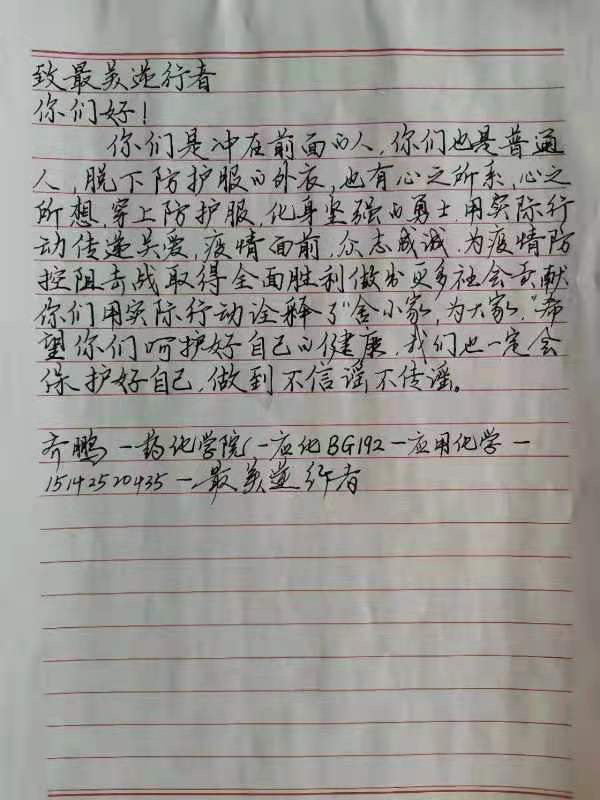 致最美逆行者
你们好!
你们是冲在前面的人,你们也是普通
人,脱下防护服的外衣,也有心之所系,心之
所想,穿上防护服,化身坚强的勇士,用实际行
动传递关爱,疫情面前,众志成诚,为疫情防
控阻击战取得全面胜利做出更多社会贡献
你们用实际行动诠释了“舍小家,为大家,”希
望你们呵护好自己的健康,我们也一定会
保护好自己,做到不信谣不传谣。
齐鹏一药化学院一应化BG192一应用化学一
15142520435一最美逆行者